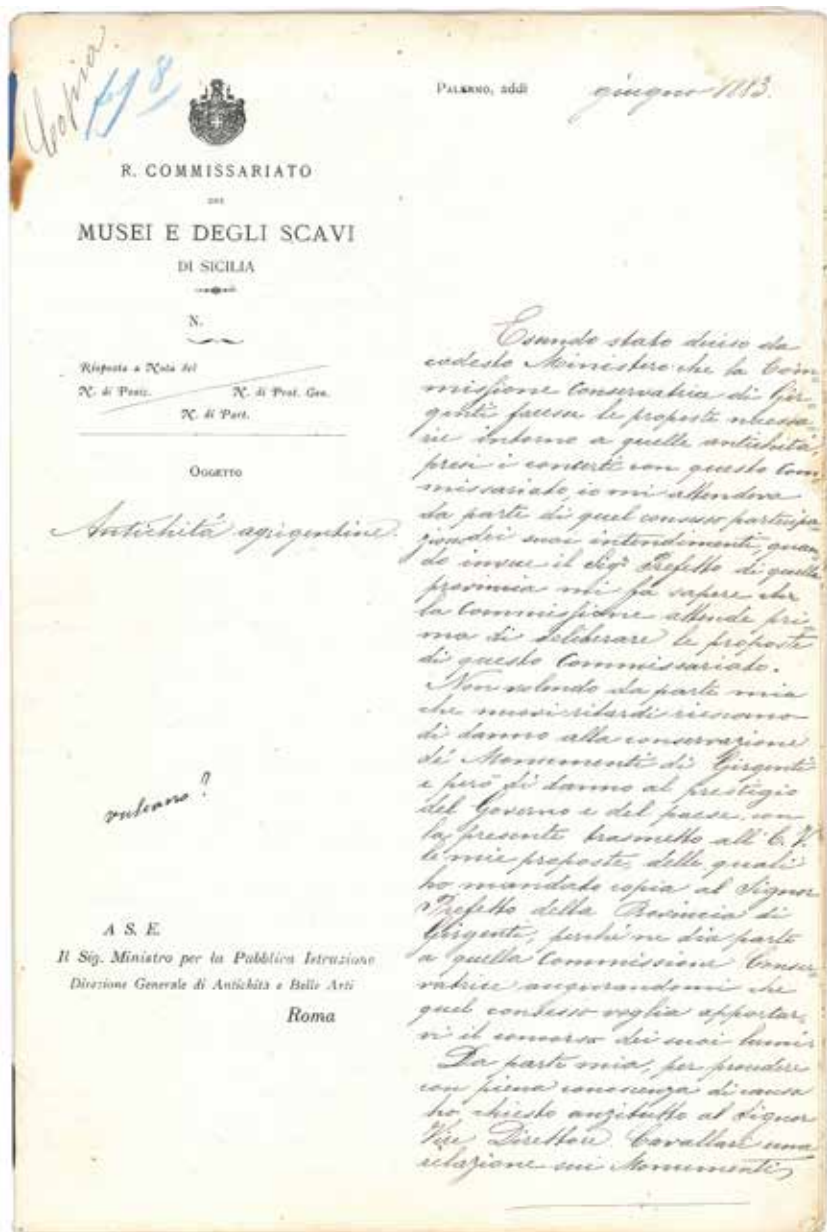 Copia
Palermo, addì giugno 1883.
R. COMMISSARIATO
DEI
MUSEI E DEGLI SCAVI
DI SICILIA
N.
Risposta a Nota del
N. di Posiz. N. di Prot. Gen.
N. di Part.
Oggetto
Antichità agrigentine.
vulcano?
A S. E.
Il Sig. Ministro per la Pubblica Istruzione
Direzione Generale di Antichità e Belle Arti
Roma
Essendo stato deciso da
codesto Ministero che la Com=
missione Conservatrice di Gir=
genti facesse le proposte necessa=
rie intorno a quelle antichità,
presi i concerti con questo Com=
missariato, io mi attendeva
da parte di quel consesso partecipa=
zione dei suoi intendimenti, quan=
do invece il Sigr Prefetto di quella
provincia mi fa sapere che
la Commissione attende pri=
ma di deliberare le proposte
di questo Commissariato.
Non volendo da parte mia
che nuovi ritardi riescano
di danno alla conservazione
dé Monumenti di Girgenti
e però di danno al prestigio
del Governo e del paese, con
la presente trasmetto all'E. V.
le mie proposte, delle quali
ho mandato copia al Signor
Prefetto della Provincia di
Girgenti, perché ne dia parte
a quella Commissione Conser=
vatrice augurandomi che
quel consesso voglia apportar=
vi il concorso dei suoi lumi.
Da parte mia, per procedere
con piena conoscenza di causa
ho chiesto anzitutto al Signor
Vice Direttore Cavallari una
relazione sui Monumenti,